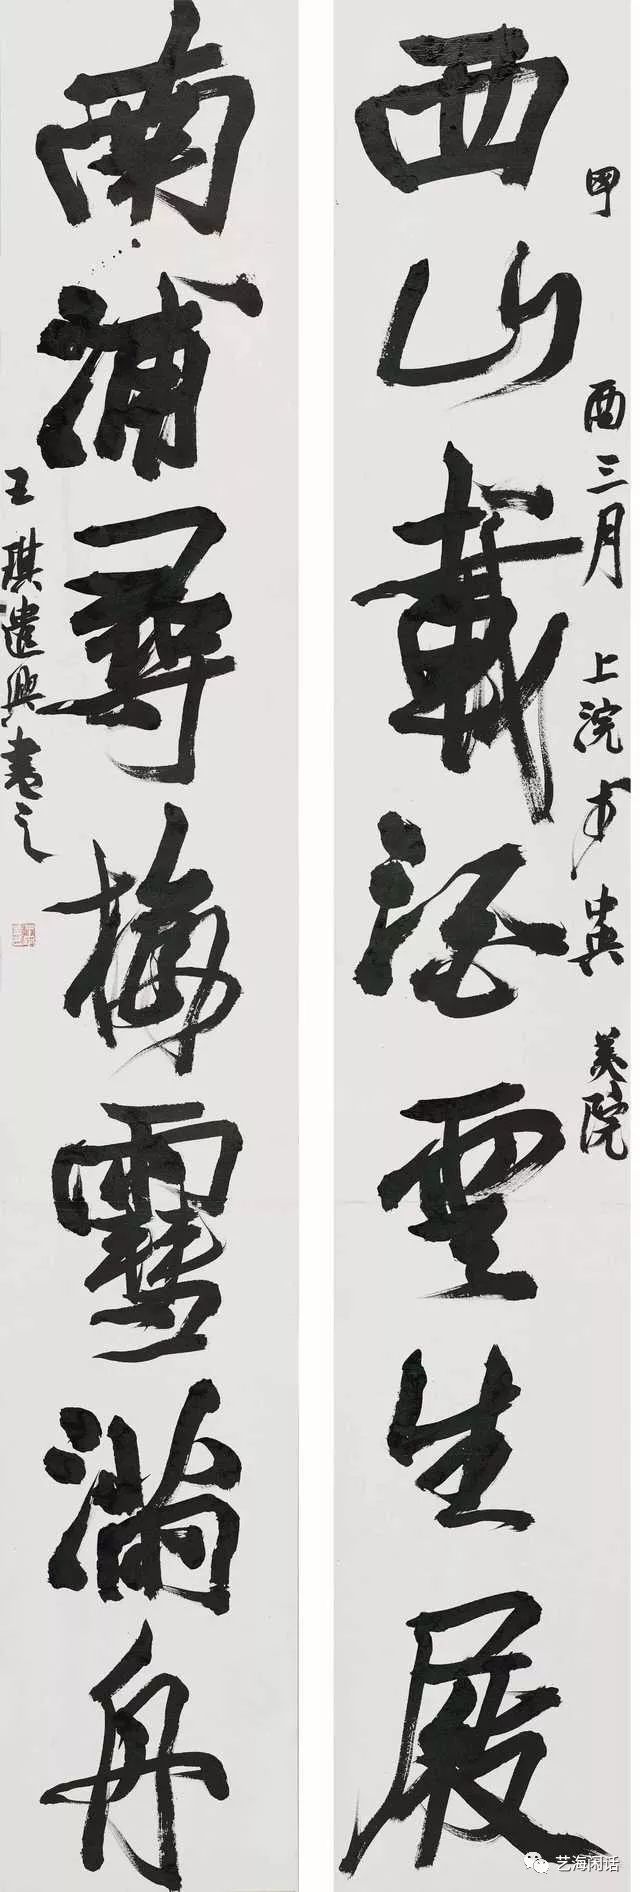 西山載酒雲生屐
甲酉三月上浣於中央美院
南浦尋梅雪滿舟
王琪遣興書之
艺海闲话